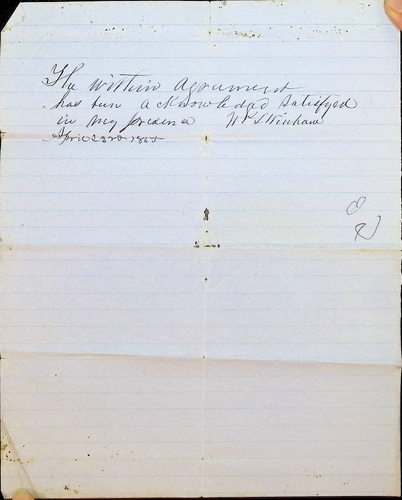 The within agreement
has been acknowledged satisfyed
in my presence W S Winham
April 23rd 1865